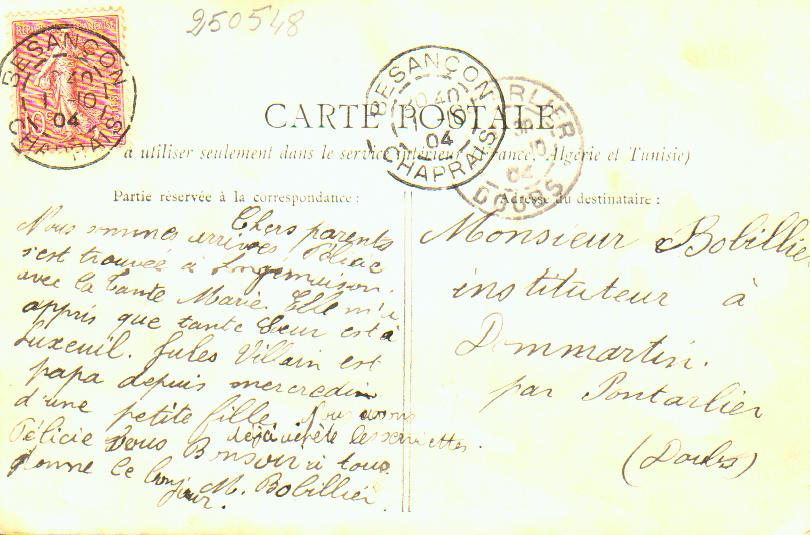 250548
RÉPUBLIQUE FRANÇAISE
10c
BESANÇON
04
CHAPRAIS
BESANÇON
04
CHAPRAIS
ARLIER
04
DOUBS
CARTE POSTALE
à utiliser seulement dans le service intérieur France, Algérie et Tunisie)
Partie réservée à la correspondance :
Adresse du destinataire :
Chers parents
Nous sommes arrivés Félicie
s'est trouvée à Longemaison.
avec la tante Marie. Elle m'a
appris que tante est à
Luxeuil. Jules Villain est
papa depuis mercredi
d'une petite fille. Nous avons
déjà les serviettes.
Félicie vous Bonsoir à tous
donne le bonjour. M. Bobillier
Monsieur Bobillier
instituteur à
Dommartin.
par Pontarlier
(Doubs)